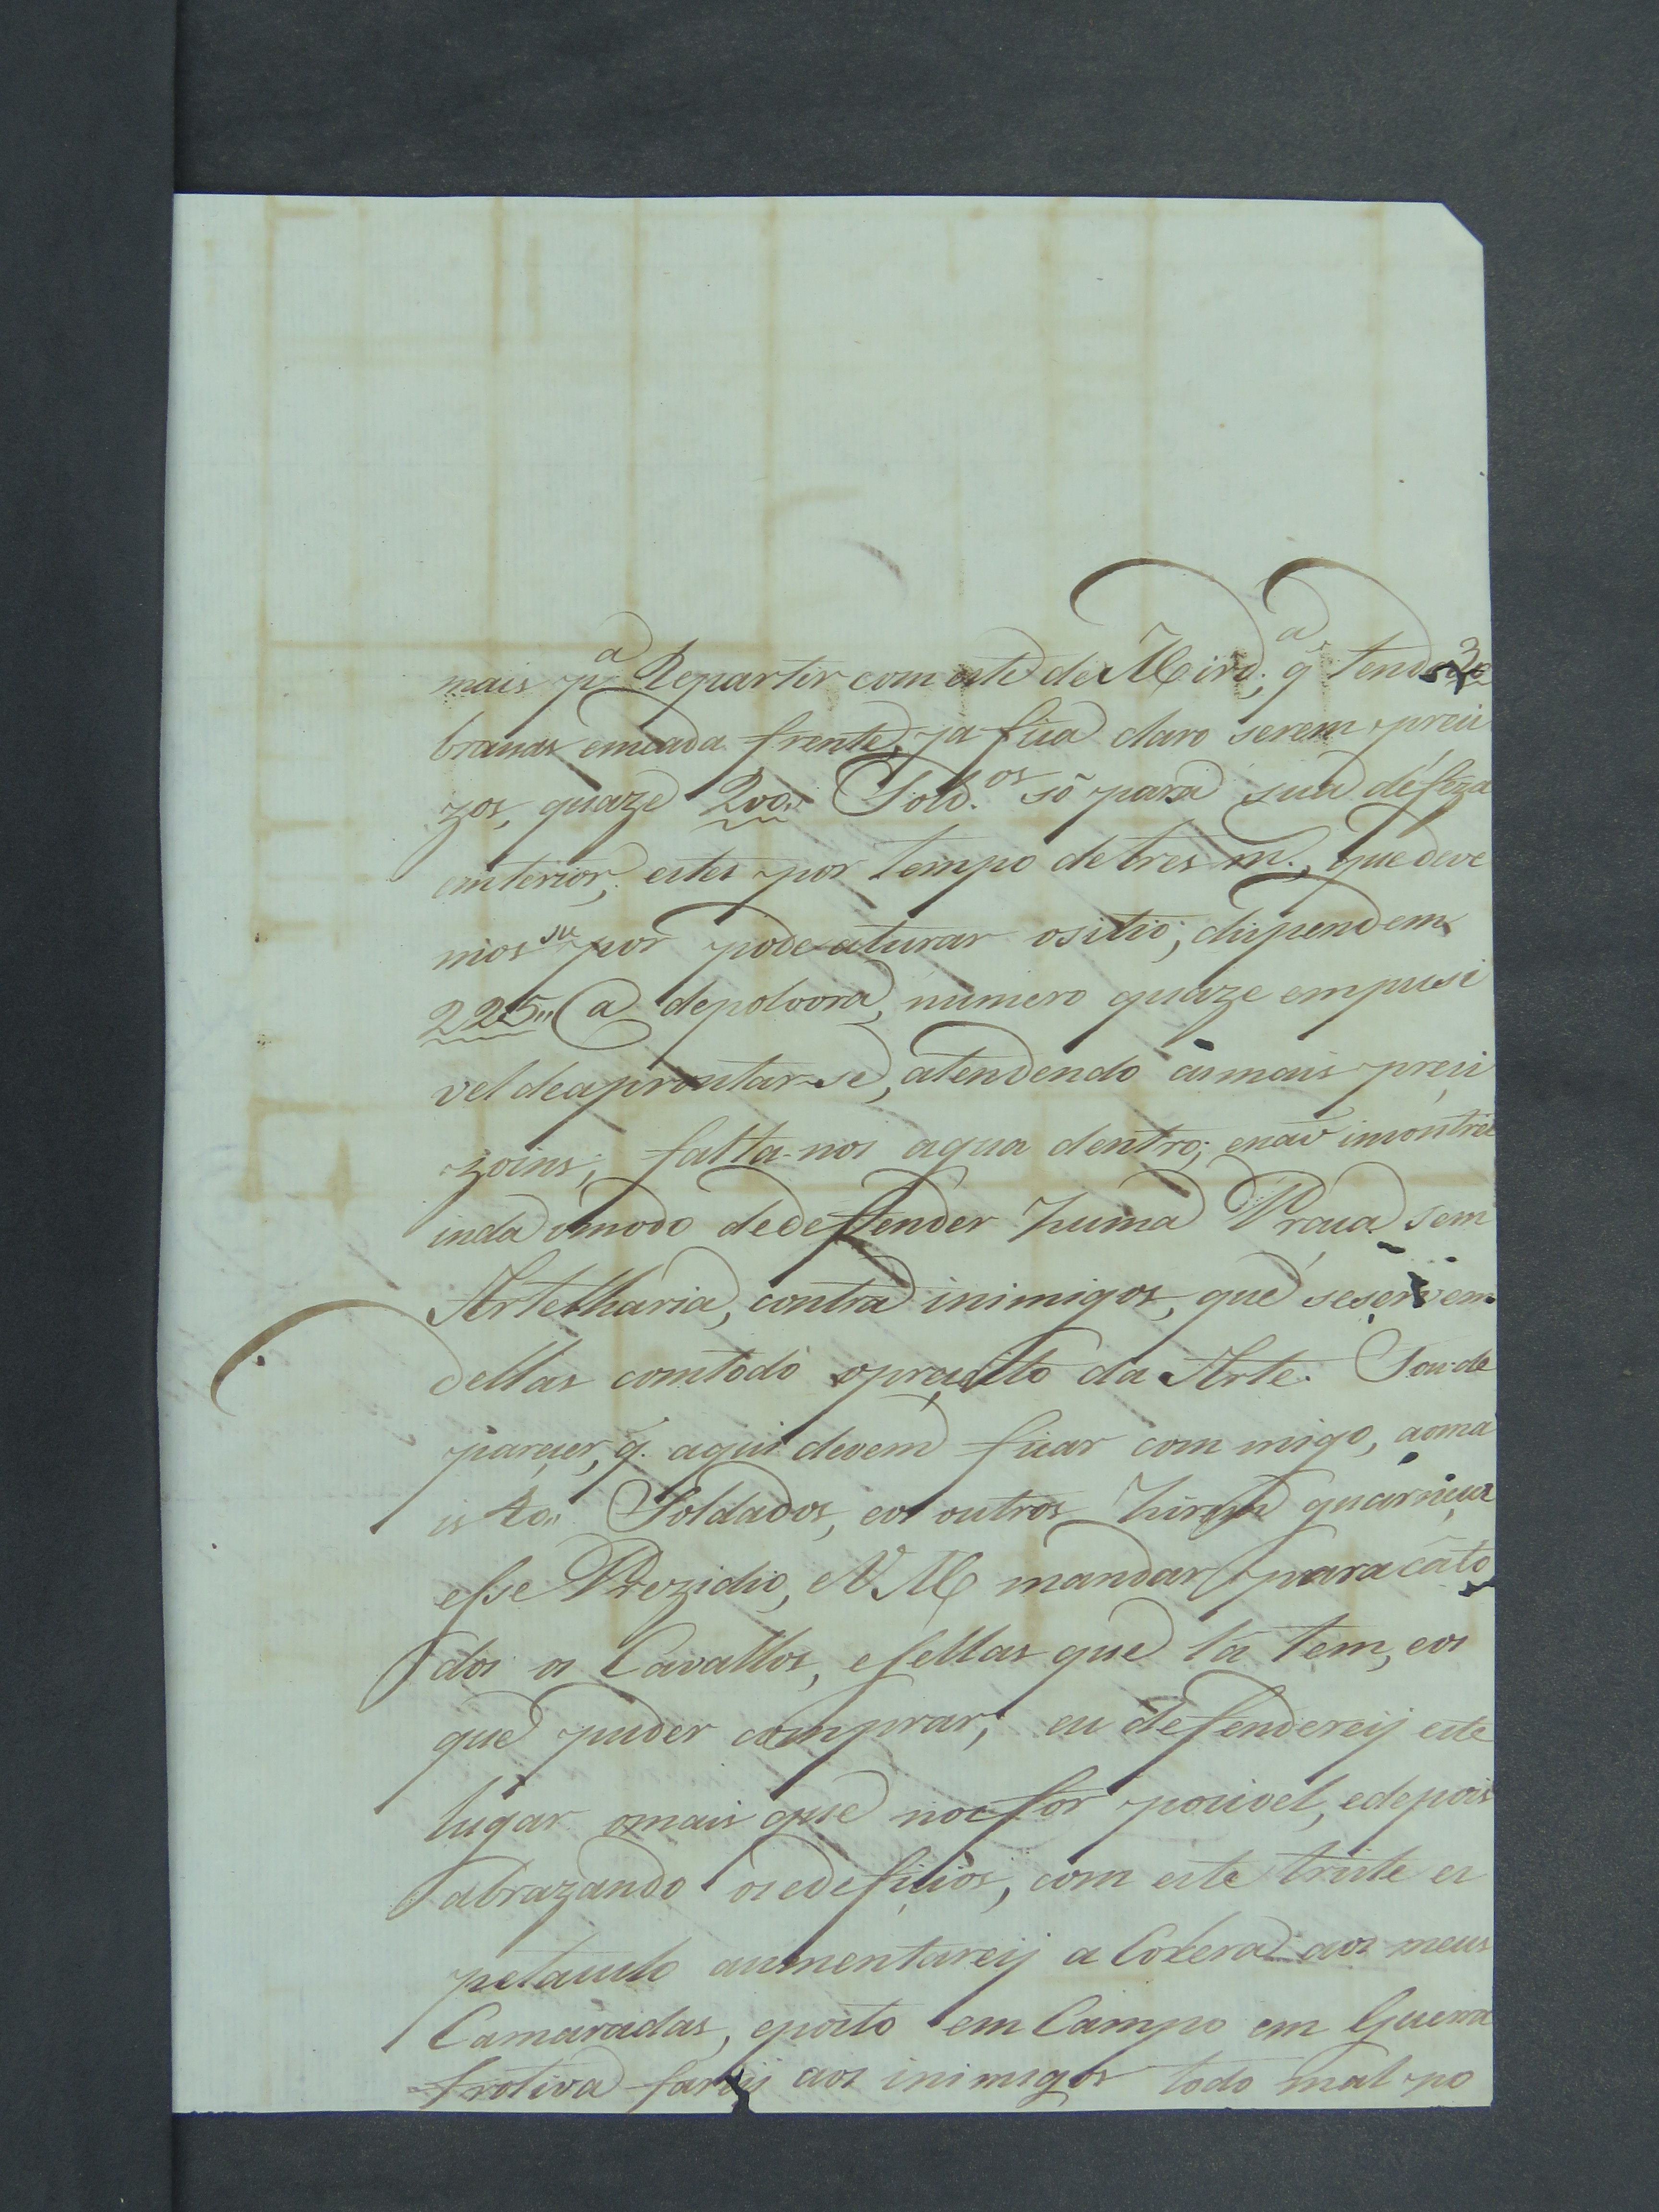 mais p.ª Repartir com este de Mird.ª, q̃ tendo 20
braças emcada frente, ja fica claro serem preci
zos, quaze 200,, Sold.os só para sua défeza
enterior, estes por tempo de tres m., que deve
mos su por pode aturar ositio, dispendem
225,, @ depolvora, número quaze empusi
vel deaprontar-se, atendendo ásmais preci
zoins; falta-nos agua dentro; enaõ incontrei
inda omodo dedeffender huma Praça sem
Artelharia, contra inimigos, que seservem
dellas comtodo opreceito da Arte. Sou de
pareçer, q̃. aqui devem ficar com migo, aoma
is 40,, Soldados, eos outros hirem guarneçer
esse Prezidio, e V. M. mandar para cáto
dos os Cavallos, esellas que lá tem, eos
que puder comprar; eu defendereij este
lugar omais que noe for posivel, edepois
abrazando osedefiçios, com este triste es
petaculo aumentareij a Colera aos meus
Camaradas, eposto em Campo em Guerra
frotiva fareij aos inimigos todo mal po